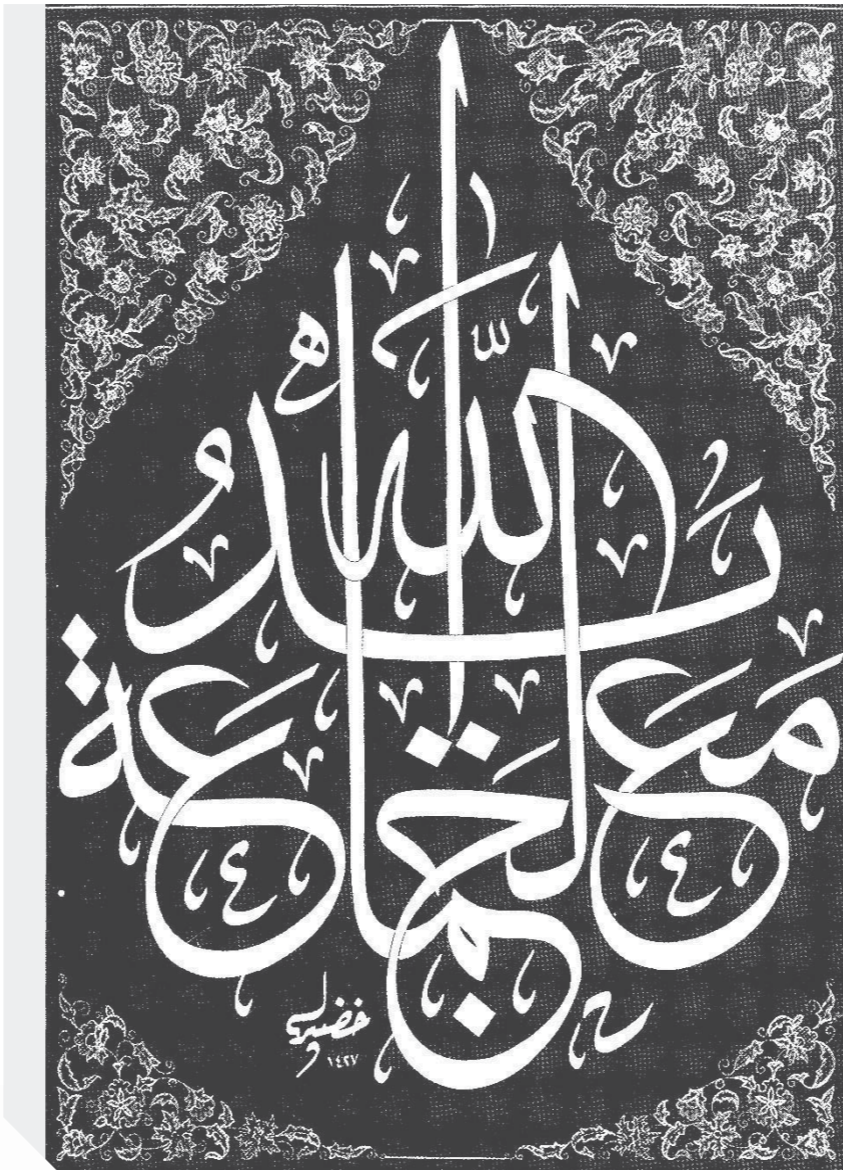 يَدُ اللّٰهِ مَعَ الْجَمَاعَةِ
١٤٢٧